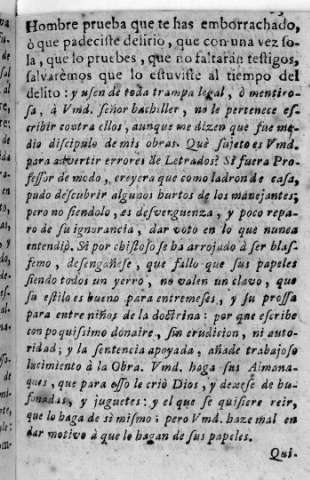 Hombre prueba que te has emborrachado,
ò que padeciste delirio, que con una vez so-
la, que lo pruebes, que no faltaràn testigos,
salvarèmos que lo estuviste al tiempo del
delito: y usen de toda trampa legal, ò mentiro-
sa, à Vmd. señor bachiller, no le pertenece es-
cribir contra ellos, aunque me dizen que fue me-
dio discipulo de mis obras. Què sujeto es Vmd.
para advertir errores de Letrados? Si fuera Pro-
fessor de modo, creyera que como ladron de casa,
pudo descubrir algunos hurtos de los manejantes;
pero no siendolo, es desverguenza, y poco repa-
ro de su ignorancia, dar voto en lo que nunca
entendiò. Si por chistoso se ha arrojado à ser blas-
femo, desengañese, que fallo que sus papeles
siendo todos un yerro, no valen un clavo, que
su estilo es bueno para entremeses, y su prossa
para entre niños de la doctrina: por que escribe
con poquissimo donaire, sin erudicion, ni auto-
ridad; y la sentencia apoyada, añade trabajoso
lucimiento à la Obra. Vmd. haga sus Almana-
ques, que para esso le criò Dios, y dexese de bu-
fonadas, y juguetes: y el que se quisiere reir,
que lo haga de sì mismo; pero Vmd. haze mal en
dar motivo à que lo hagan de sus papeles.
Qui-